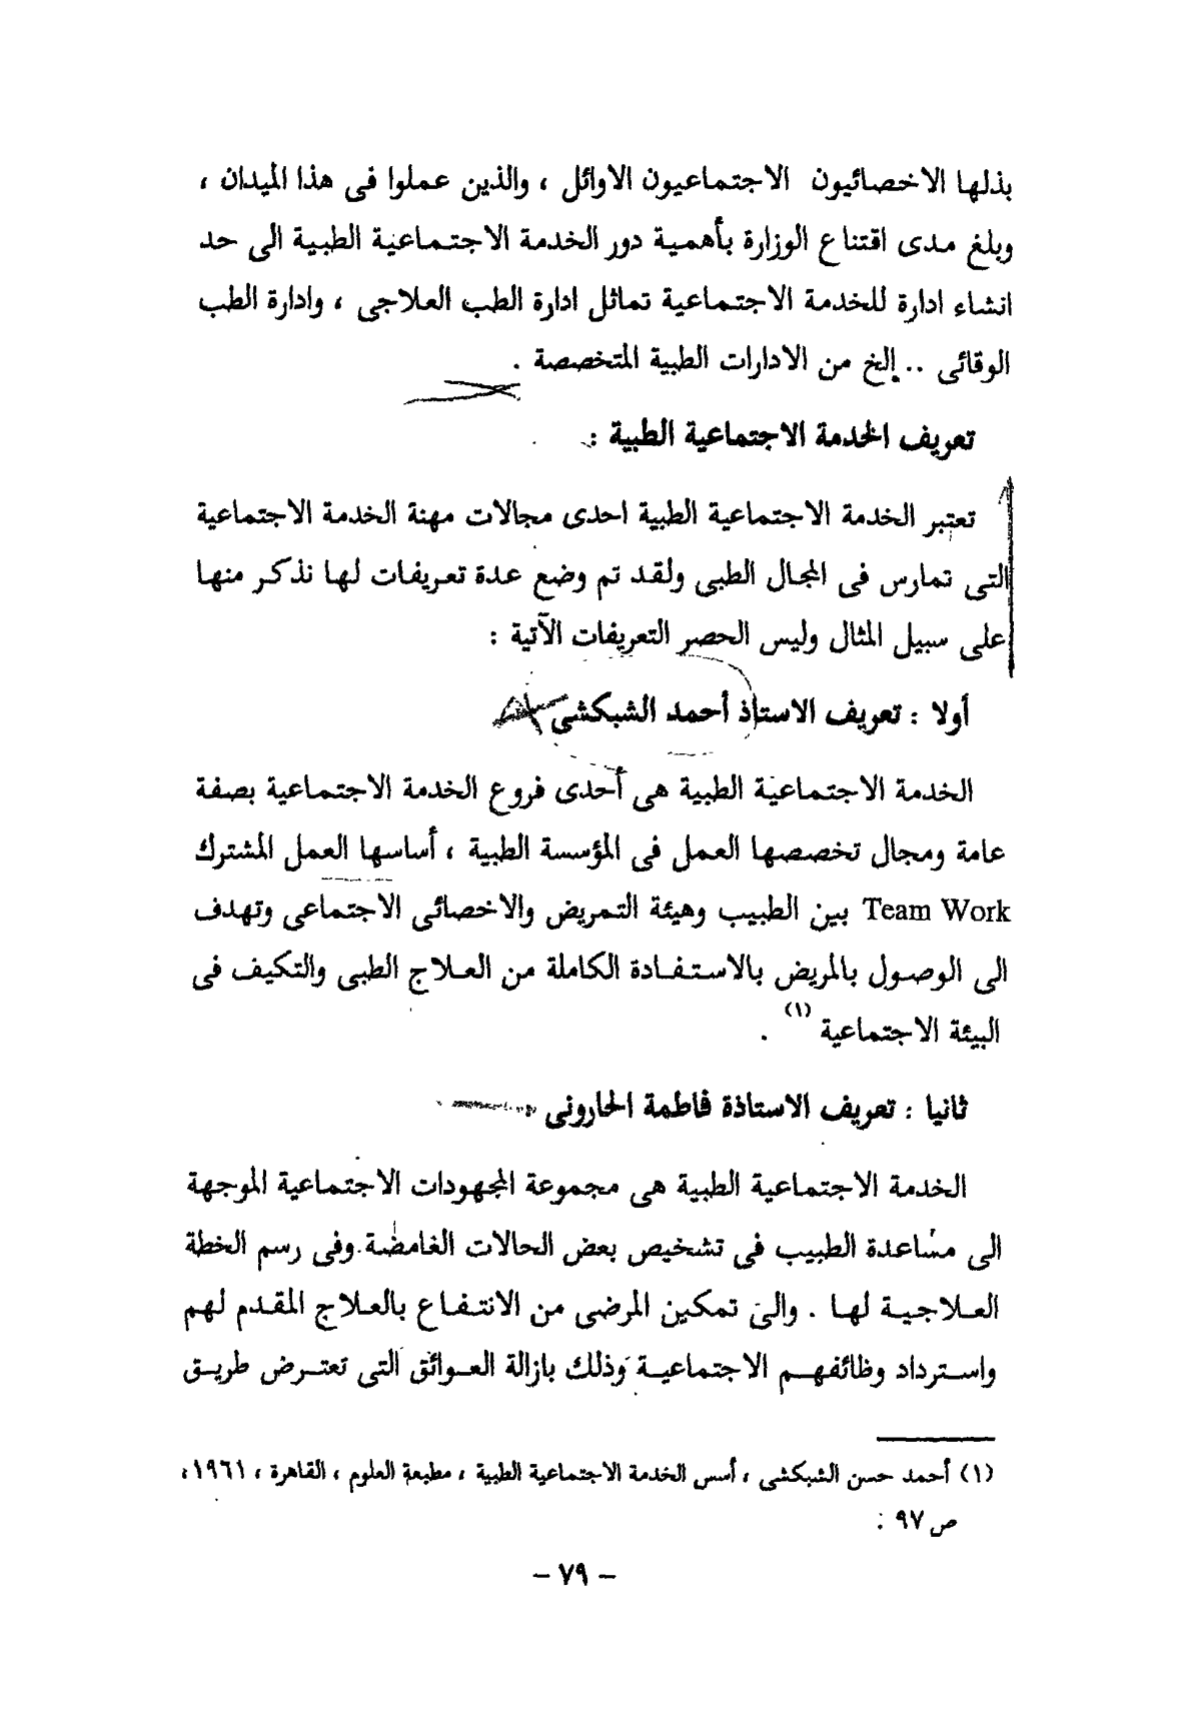 بذلها الاخصائيون الاجتماعيون الاوائل ، والذين عملوا فى هذا الميدان ،
وبلغ مدى اقتناع الوزارة بأهمية دور الخدمة الاجتماعية الطبية الى حد
انشاء ادارة للخدمة الاجتماعية تماثل ادارة الطب العلاجى ، وادارة الطب
الوقائى .. إلخ من الادارات الطبية المتخصصة .
تعريف الخدمة الاجتماعية الطبية :
تعتبر الخدمة الاجتماعية الطبية احدى مجالات مهنة الخدمة الاجتماعية
التى تمارس فى المجال الطبى ولقد تم وضع عدة تعريفات لها نذكر منها
على سبيل المثال وليس الحصر التعريفات الآتية :
أولا : تعريف الاستاذ أحمد الشبكشى
الخدمة الاجتماعية الطبية هى أحدى فروع الخدمة الاجتماعية بصفة
عامة ومجال تخصصها العمل فى المؤسسة الطبية ، أساسها العمل المشترك
Team Work بين الطبيب وهيئة التمريض والاخصائى الاجتماعى وتهدف
الى الوصول بالمريض بالاستفادة الكاملة من العلاج الطبى والتكيف فى
البيئة الاجتماعية (١) .
ثانيا : تعريف الاستاذة فاطمة الحارونى
الخدمة الاجتماعية الطبية هى مجموعة المجهودات الاجتماعية الموجهة
الى مساعدة الطبيب فى تشخيص بعض الحالات الغامضة وفى رسم الخطة
العلاجية لها . والى تمكين المرضى من الانتفاع بالعلاج المقدم لهم
واسترداد وظائفهم الاجتماعية وذلك بازالة العوائق التى تعترض طريق
(١) أحمد حسن الشبكشى ، أسس الخدمة الاجتماعية الطبية ، مطبعة العلوم ، القاهرة ، ١٩٦١ ،
ص ٩٧ .
– ٧٩ –